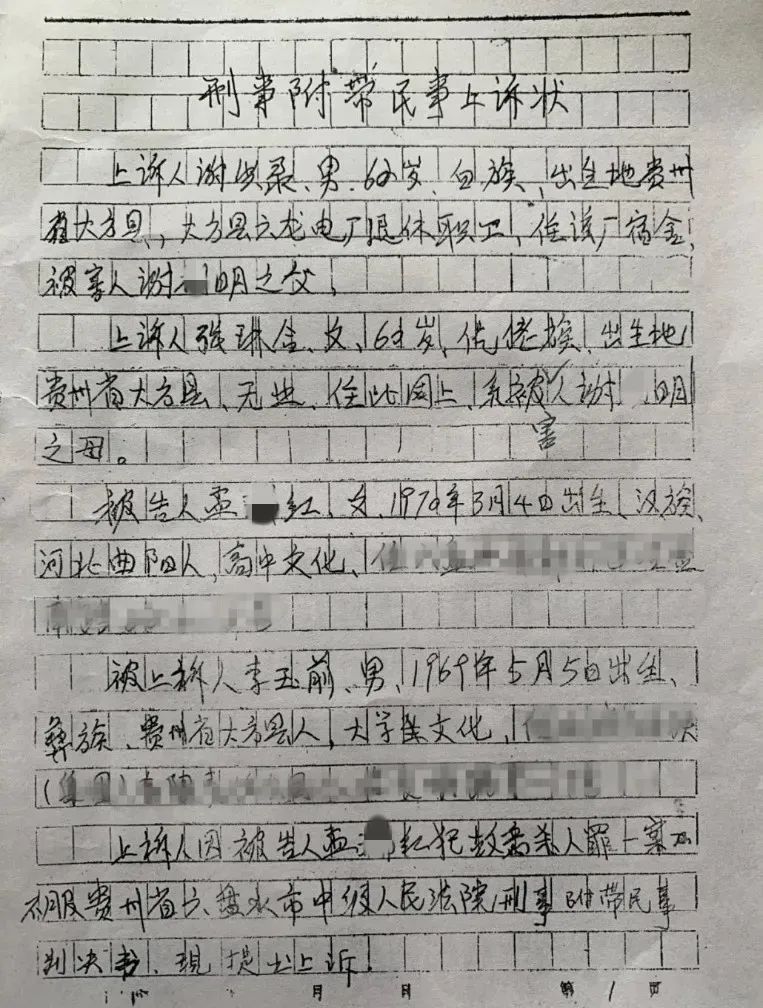 刑事附带民事上诉状
上诉人谢洪录、男、62岁、白族、出生地贵州
省大方县,、大方县六龙电厂退休职工、住该厂宿舍、
被害人谢 明之父,
上诉人张琳金、女、62岁、仡佬族、出生地
贵州省大方县、无业、住址同上、系被害人谢 明
之母。
被告人孟 红、女、1970年3月4日出生、汉族、
河北曲阳人,高中文化、住
被上诉人李玉前、男、1969年5月5日出生、
彝族、贵州省大方县人,大学文化,
(集团)
上诉人因被告人孟 红犯故意杀人罪一案
不服贵州省六盘水市中级人民法院刑事附带民事
判决书、现提出上诉!
月 日 第1页